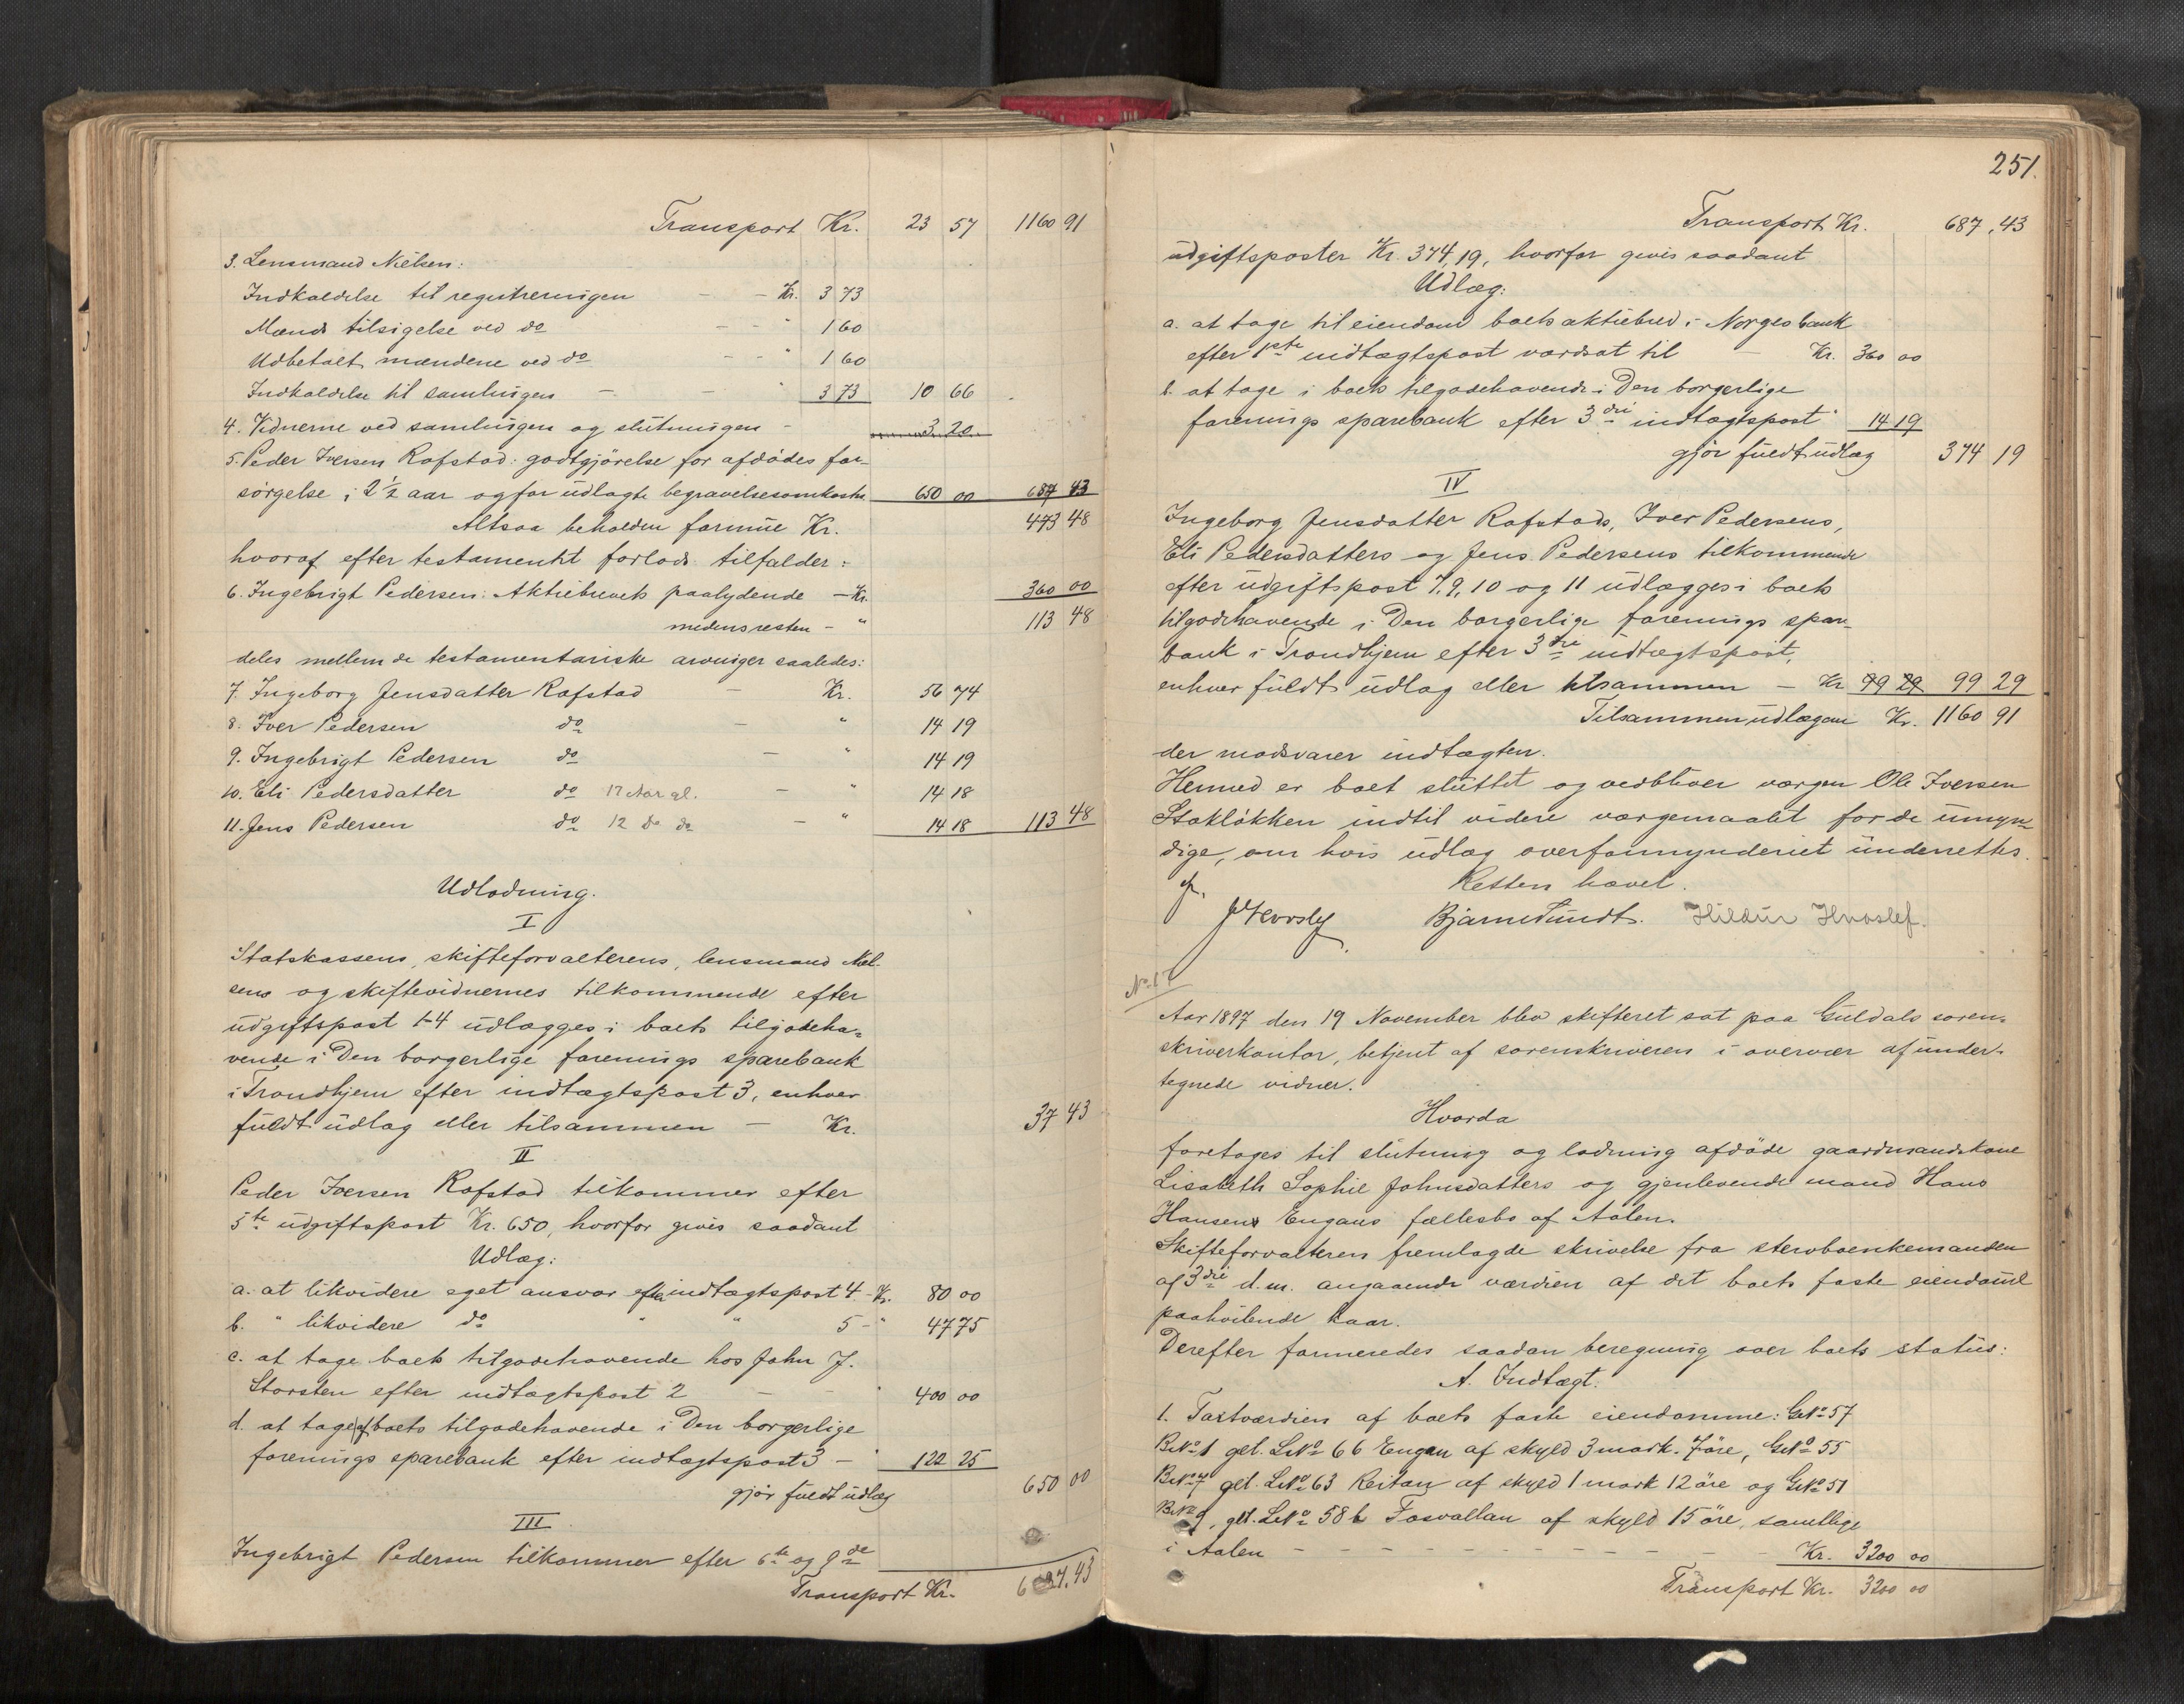 Transport Kr. 23 57 1160 91
3. Lensmand Nielsen:
Indkaldelse til registreringen - - Kr. 3 73
Mænds tilsigelse ved do - - " 1 60
Udbetalt mændene ved do - - " 1 60
Indkaldelse til samlingen - - " 3 73 10 66
4. Vidnerne ved samlingen og slutningen - 3 20
5. Peder Iversen Rofstad: godtgjörelse for afdödes for-
sörgelse i 2 1/2 aar og for udlagte begravelsesomkostn 650 00 687 43
Altsaa beholden formue Kr. 473 48
hvoraf efter testamentet forlods tilfalder:
6. Ingebrigt Pedersen: Aktiebrevets paalydende - Kr. 360 00
medens resten - " 113 48
deles mellem de testamentariske arvinger saaledes:
7. Ingeborg Jensdatter Rofstad - Kr. 56 74
8. Iver Pedersen do - " 14 19
9. Ingebrigt Pedersen do - " 14 19
10. Eli Pedersdatter do 17 Aar gl. - " 14 18
11. Jens Pedersen do 12 do do - " 14 18 113 48
Udlodning.
I
Statskassens, skifteforvalterens, lensmand Niel-
sens og skiftevidnernes tilkommende efter
udgiftspost 1-4 udlægges i boets tilgodeha-
vende i Den borgerlige forenings sparebank
i Trondhjem efter indtægtspost 3, enhver
fuldt udlæg eller tilsammen - Kr. 37 43
II
Peder Iversen Rofstad tilkommer efter
5te udgiftspost Kr. 650, hvorfor gives saadant
Udlæg:
a. at likvidere eget ansvar efter indtægtspost 4 - Kr. 80 00
b. " likvidere do " " 5 - " 47 75
c. at tage boets tilgodehavende hos John J.
Storsten efter indtægtspost 2 - - " 400 00
d. at tage af boets tilgodehavende i Den borgerlige
forenings sparebank efter indtægtspost 3 - " 122 25
gjör fuldt udlæg 650 00
III
Ingebrigt Pedersen tilkommer efter 6te og 9de
Transport Kr. 687,43
251.
Transport Kr. 687,43
udgiftsposter Kr. 374,19, hvorfor gives saadant
Udlæg:
a. at tage til eiendom boets aktiebrev i Norges bank
efter 1ste indtægtspost værdsat til - Kr. 360 00
b. at tage i boets tilgodehavende i Den borgerlige
forenings sparebank efter 3die indtægtspost " 14 19
gjör fuldt udlæg 374 19
IV
Ingeborg Jensdatter Rofstads, Iver Pedersens,
Eli Pedersdatters og Jens Pedersens tilkommende
efter udgiftspost 7, 9, 10 og 11 udlægges i boets
tilgodehavende i Den borgerlige forenings spare-
bank i Trondhjem efter 3die indtægtspost,
enhver fuldt udlæg eller tilsammen - Kr 99 29 99 29
Tilsammen udlægene Kr. 1160 91
der modsvarer indtægten.
Hermed er boet sluttet og vedbliver værgen Ole Iversen
Stokløkken indtil videre værgemaalet for de umyn-
dige, om hvis udlæg overformynderiet underrettes.
Retten hævet.
Bjarne Sundt. Hildur Hvoslef.
No. 17
Aar 1897 den 19 November blev skifteret sat paa Guldals soren-
skriverkontor, betjent af sorenskriveren i overvær af under-
tegnede vidner.
Hvorda
foretoges til slutning og lodning afdöde gaardmandskone
Lisabeth Sophie Johnsdatters og gjenlevende mand Hans
Hansens Engans fællesbo af Aalen.
Skifteforvalteren fremlagde skrivelse fra stervboenkemanden
af 3die d.m. angaaende værdien af det boets faste eiendomme
paahvilende kaar.
Derefter formeredes saadan beregning over boets status:
A. Indtægt.
1. Taxtværdien af boets faste eiendomme: GNo 57
BNo 1 gel. LNo 66 Engan af skyld 3 mark. 7 öre, GNo 55
BNo 7 gel. LNo 63 Reitan af skyld 1 mark 12 öre og GNo 51
BNo 9, gel. LNo 58 b Fosvollan af skyld 15 öre, samtlige
i Aalen - - - - - - - - - Kr. 3200 00
Transport Kr. 3200 00